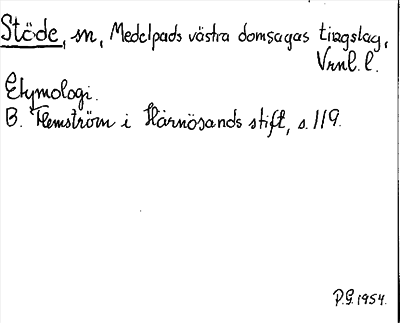 Stöde, sn, Medelpads västra domsagas tingslag,
Vrnl. l.
Etymologi.
B. Flemström i Härnösands stift, s. 119.
P.G. 1954.